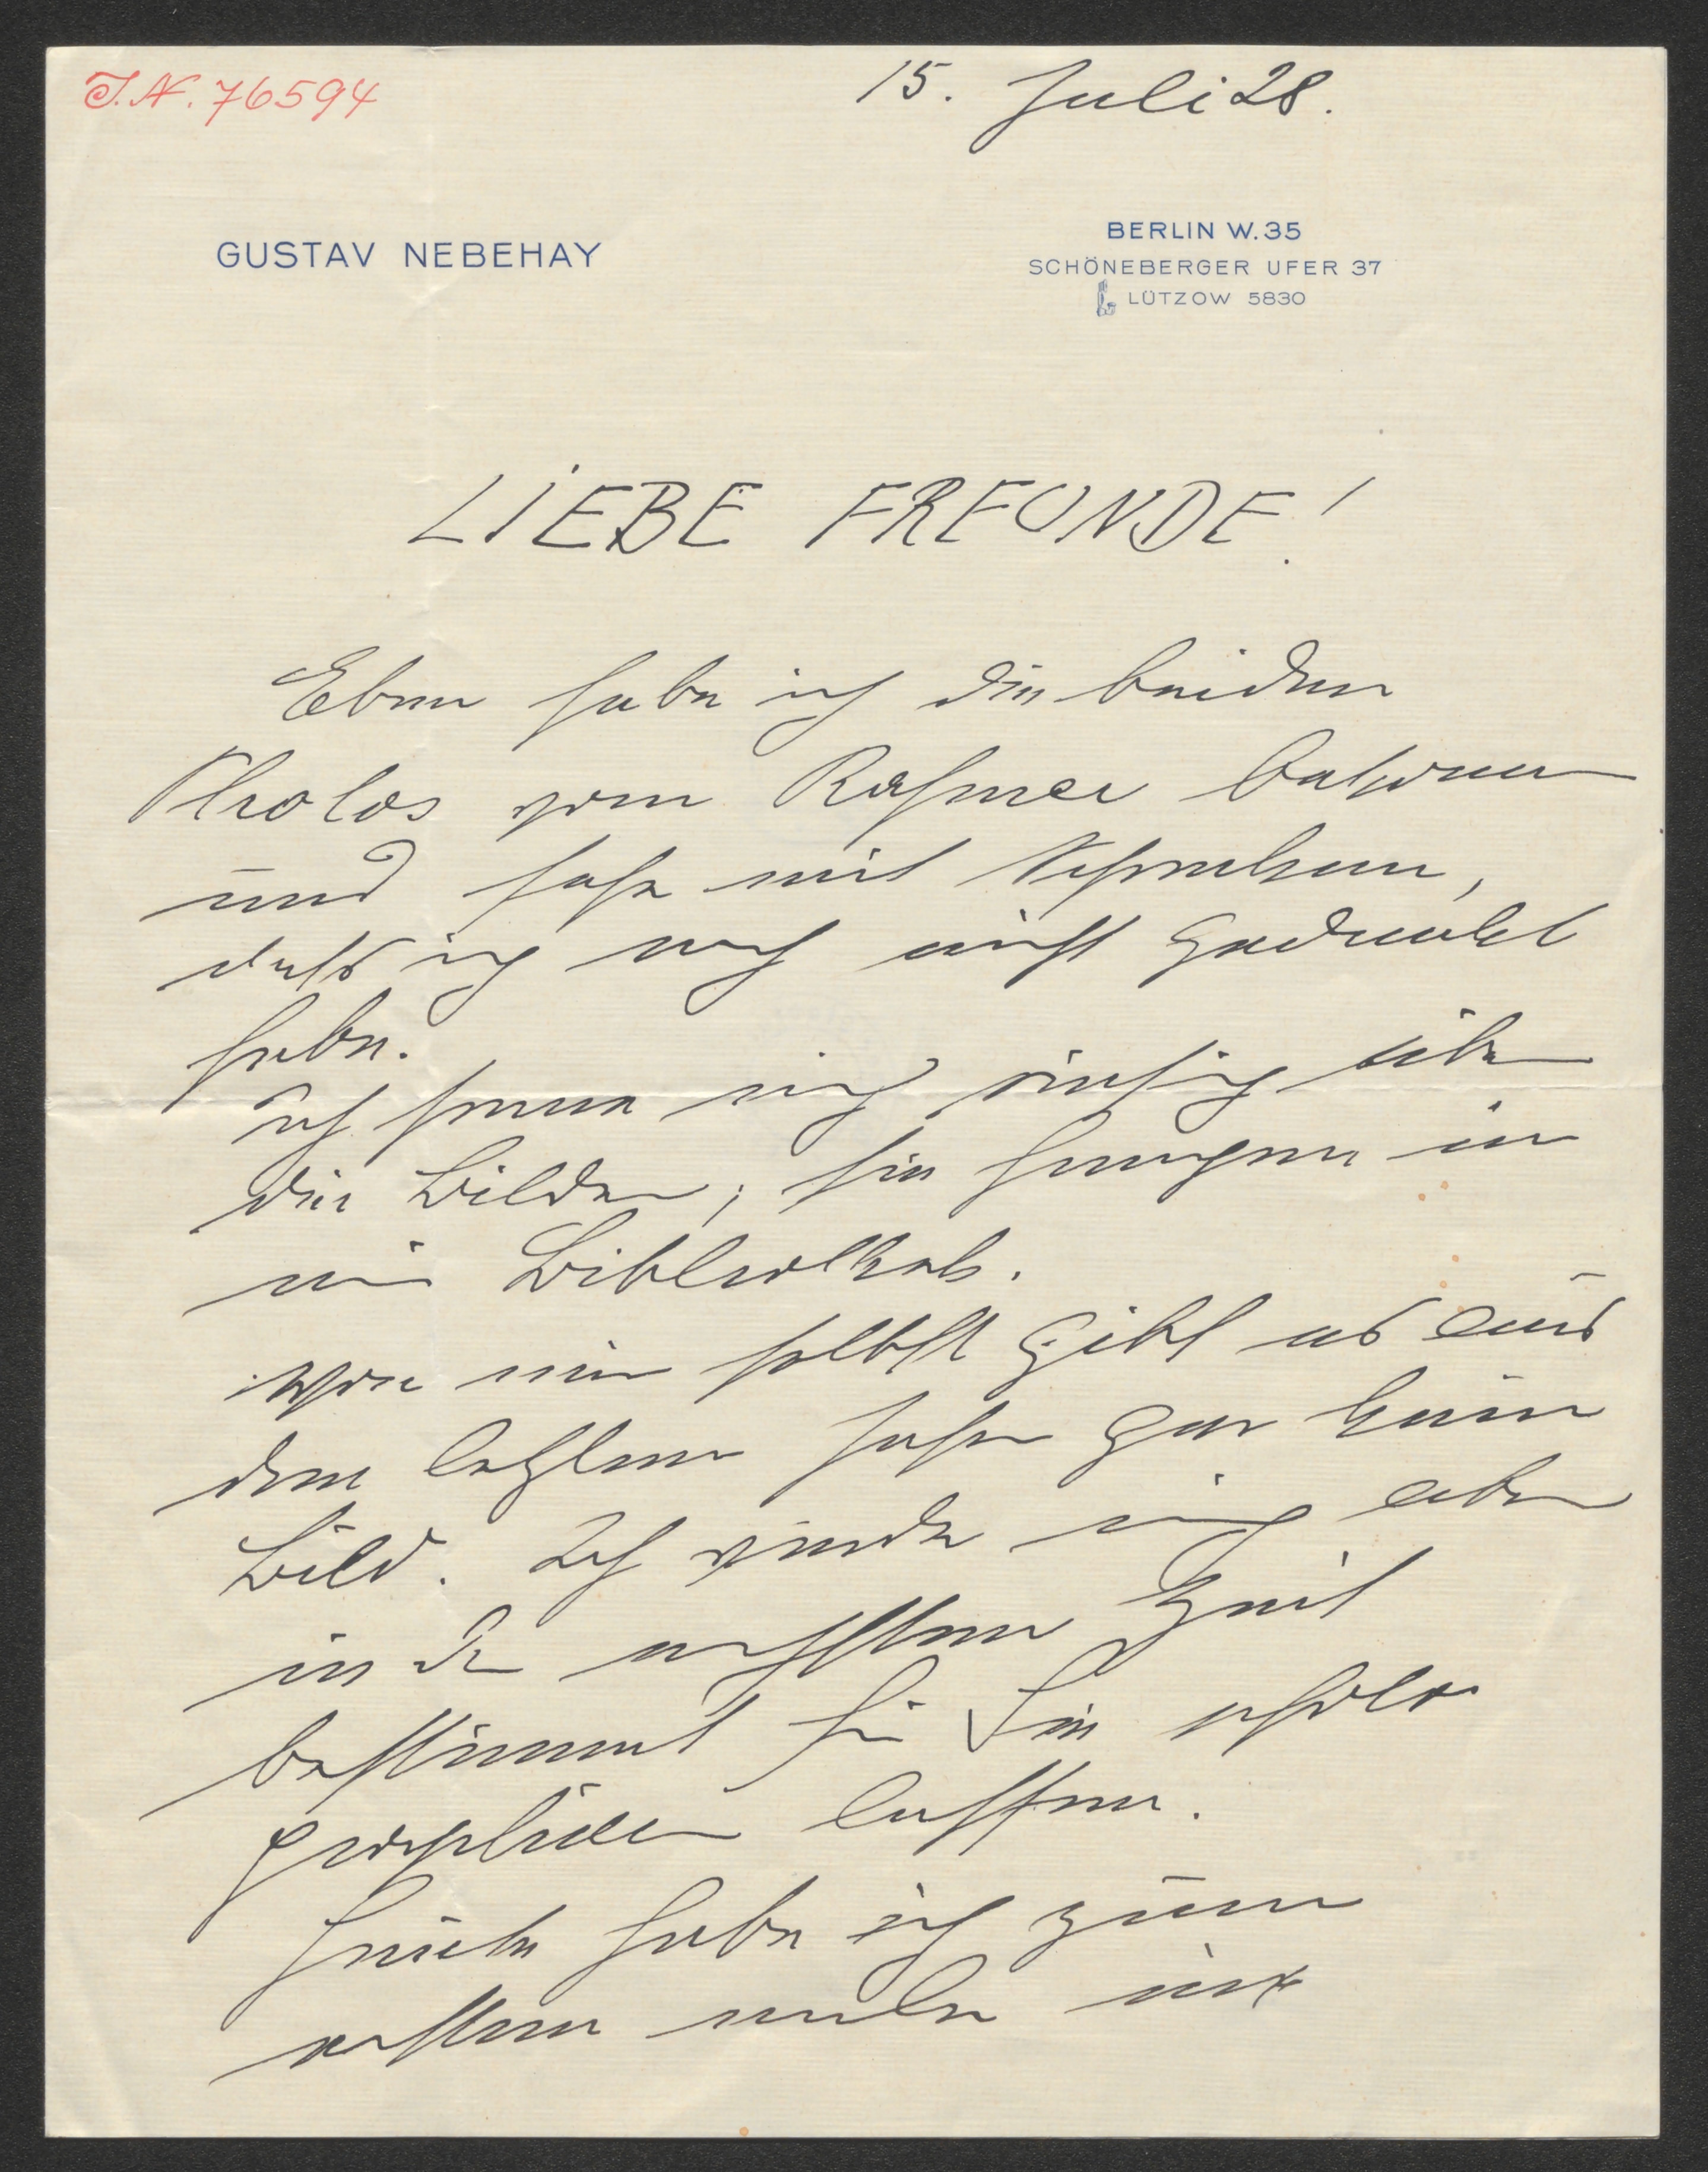 J.N. 76594
15. Juli 28.
GUSTAV NEBEHAY
BERLIN W.35
SCHÖNEBERGER UFER 37
LÜTZOW 5830
LIEBE FREUNDE!
Eben habe ich die beiden
Photos vom Rahmer bekommen
und sehe mit Schrecken,
dass ich noch nicht gedankt
habe.
Ich freue mich riesig über
die Bilder; sie hangen in
mei Bibliothek.
von mir selbst gibt es aus
den letzten Jahren gar kein
Bild. Ich werde mich aber
in der nächsten Zeit
bestimmt für Sie
lassen.
Heute habe ich zum
ersten male